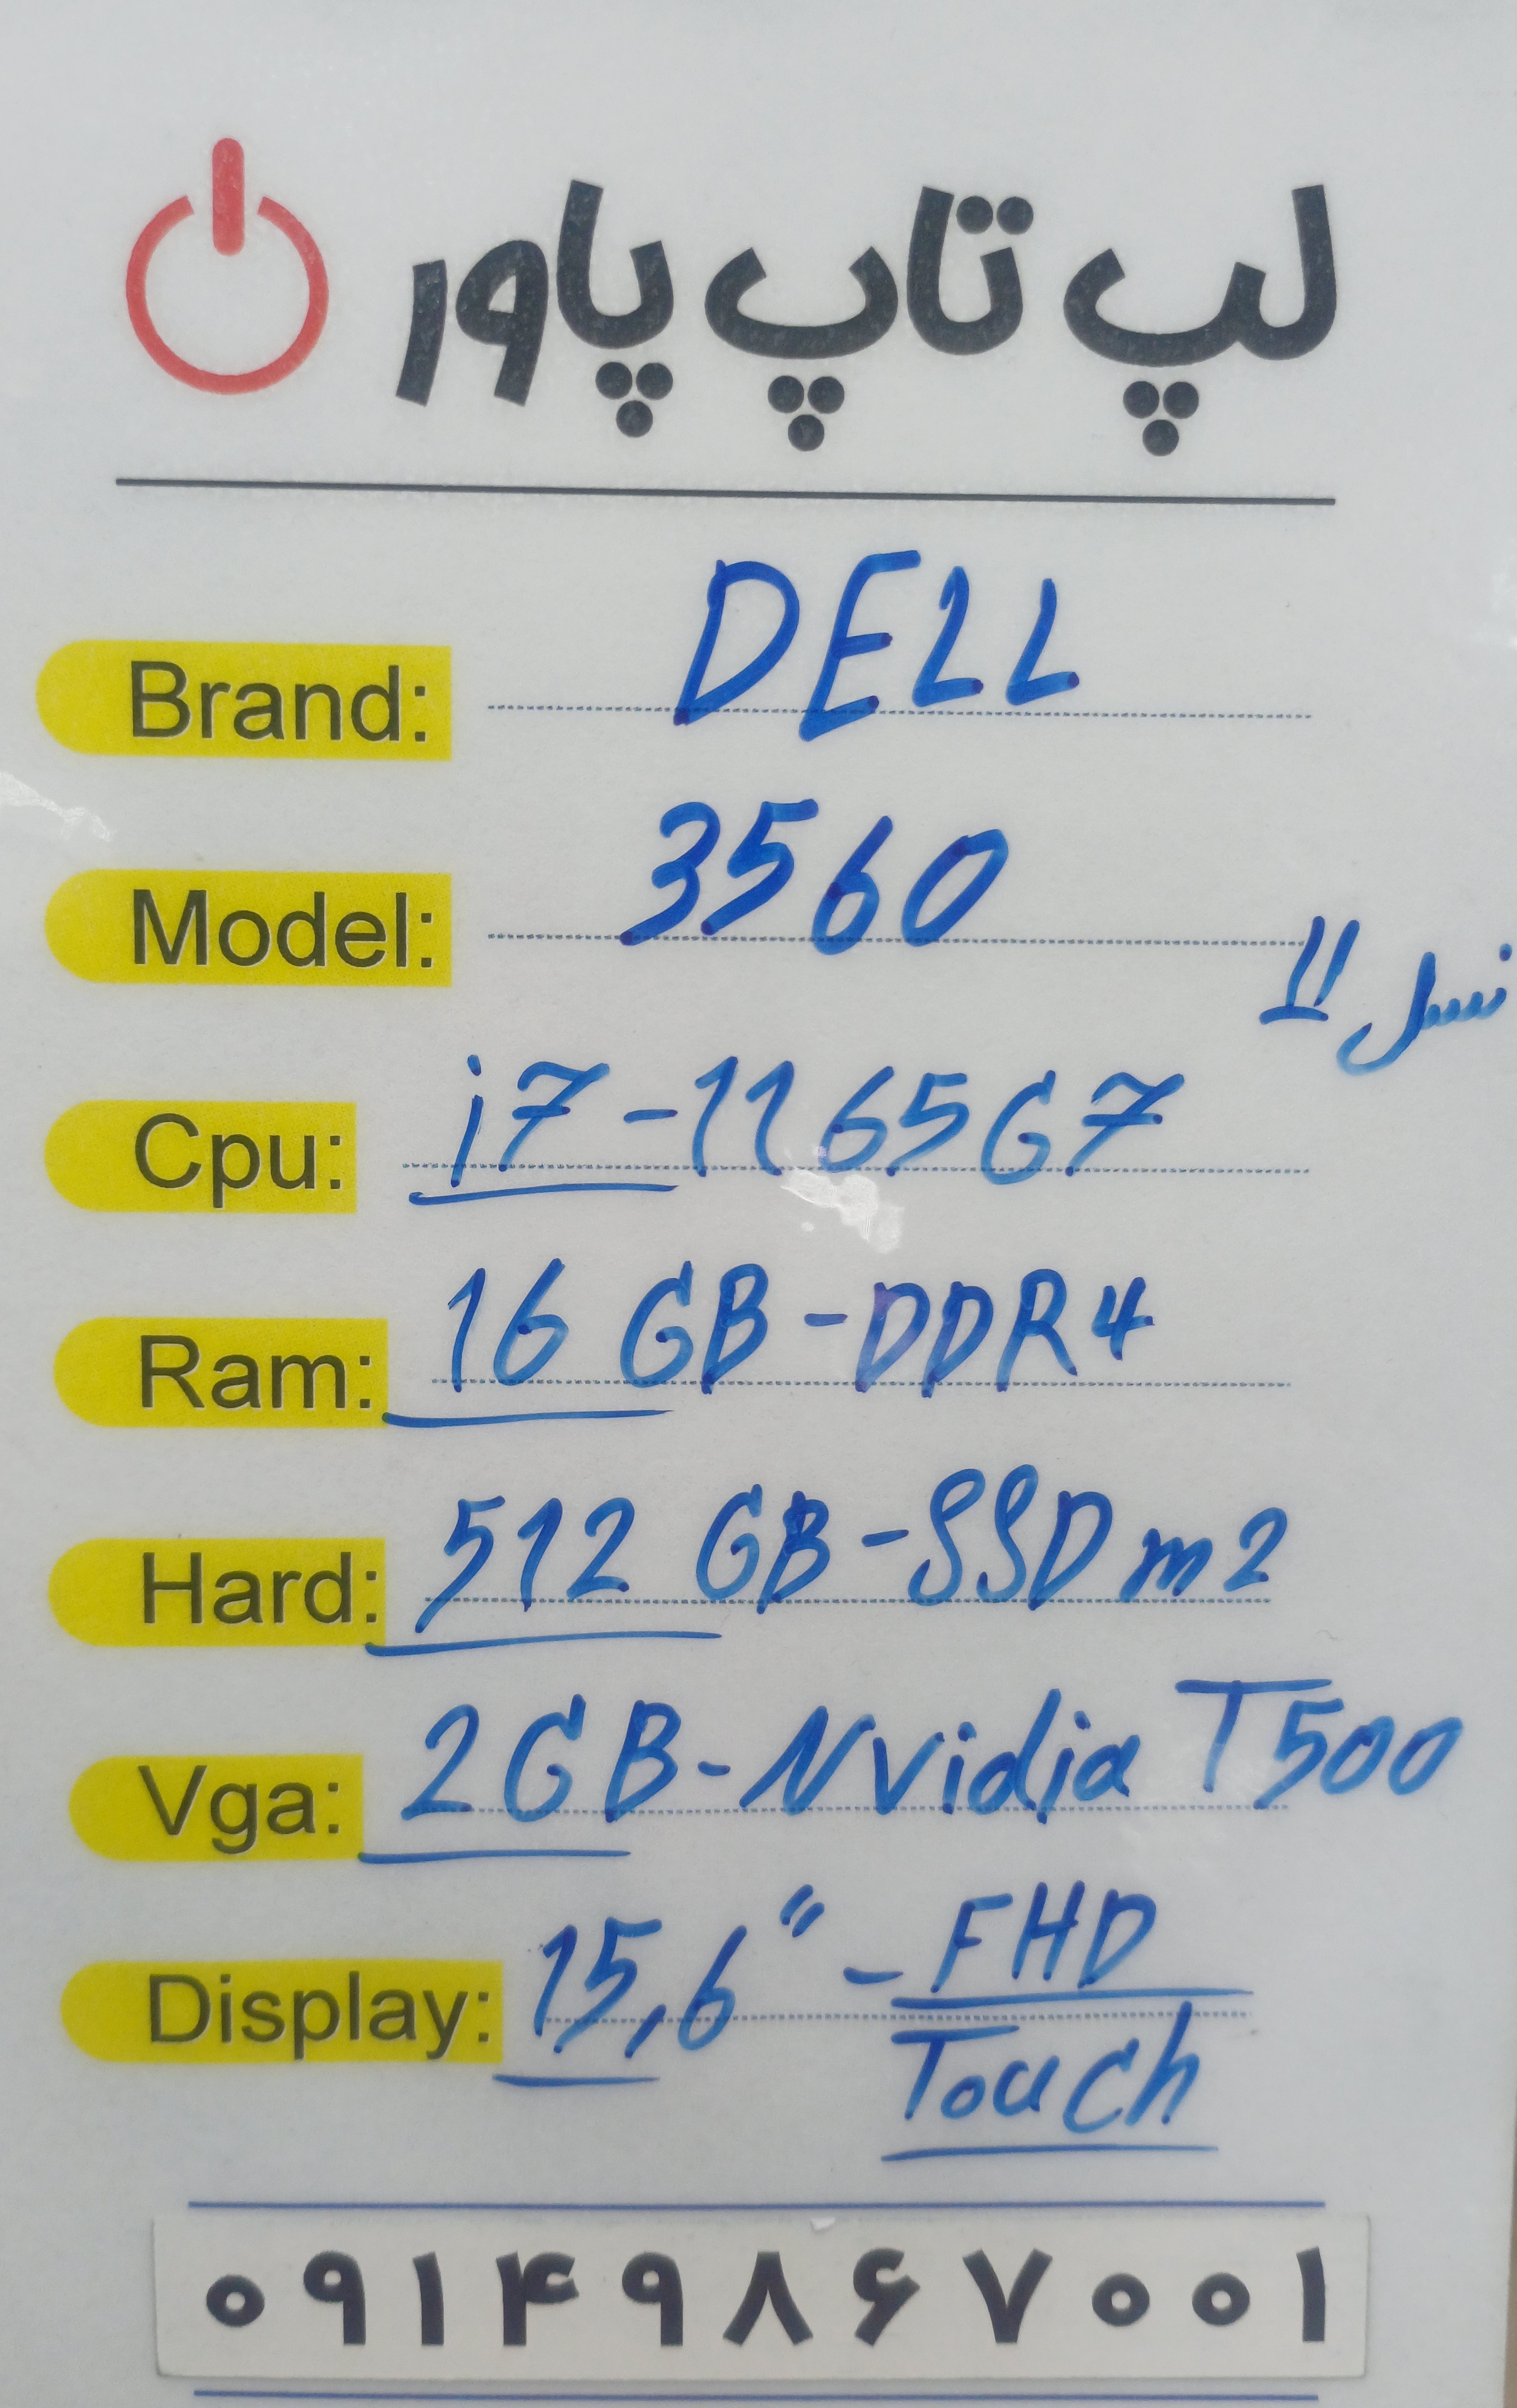 لپ تاپ پاور
Brand: DELL
Model: 3560
نسل 11
Cpu: i7-1165G7
Ram: 16 GB-DDR4
Hard: 512 GB-SSD m2
Vga: 2GB-Nvidia T500
Display: 15,6"-FHD
Touch
۰۹۱۴۹۸۶۷۰۰۱